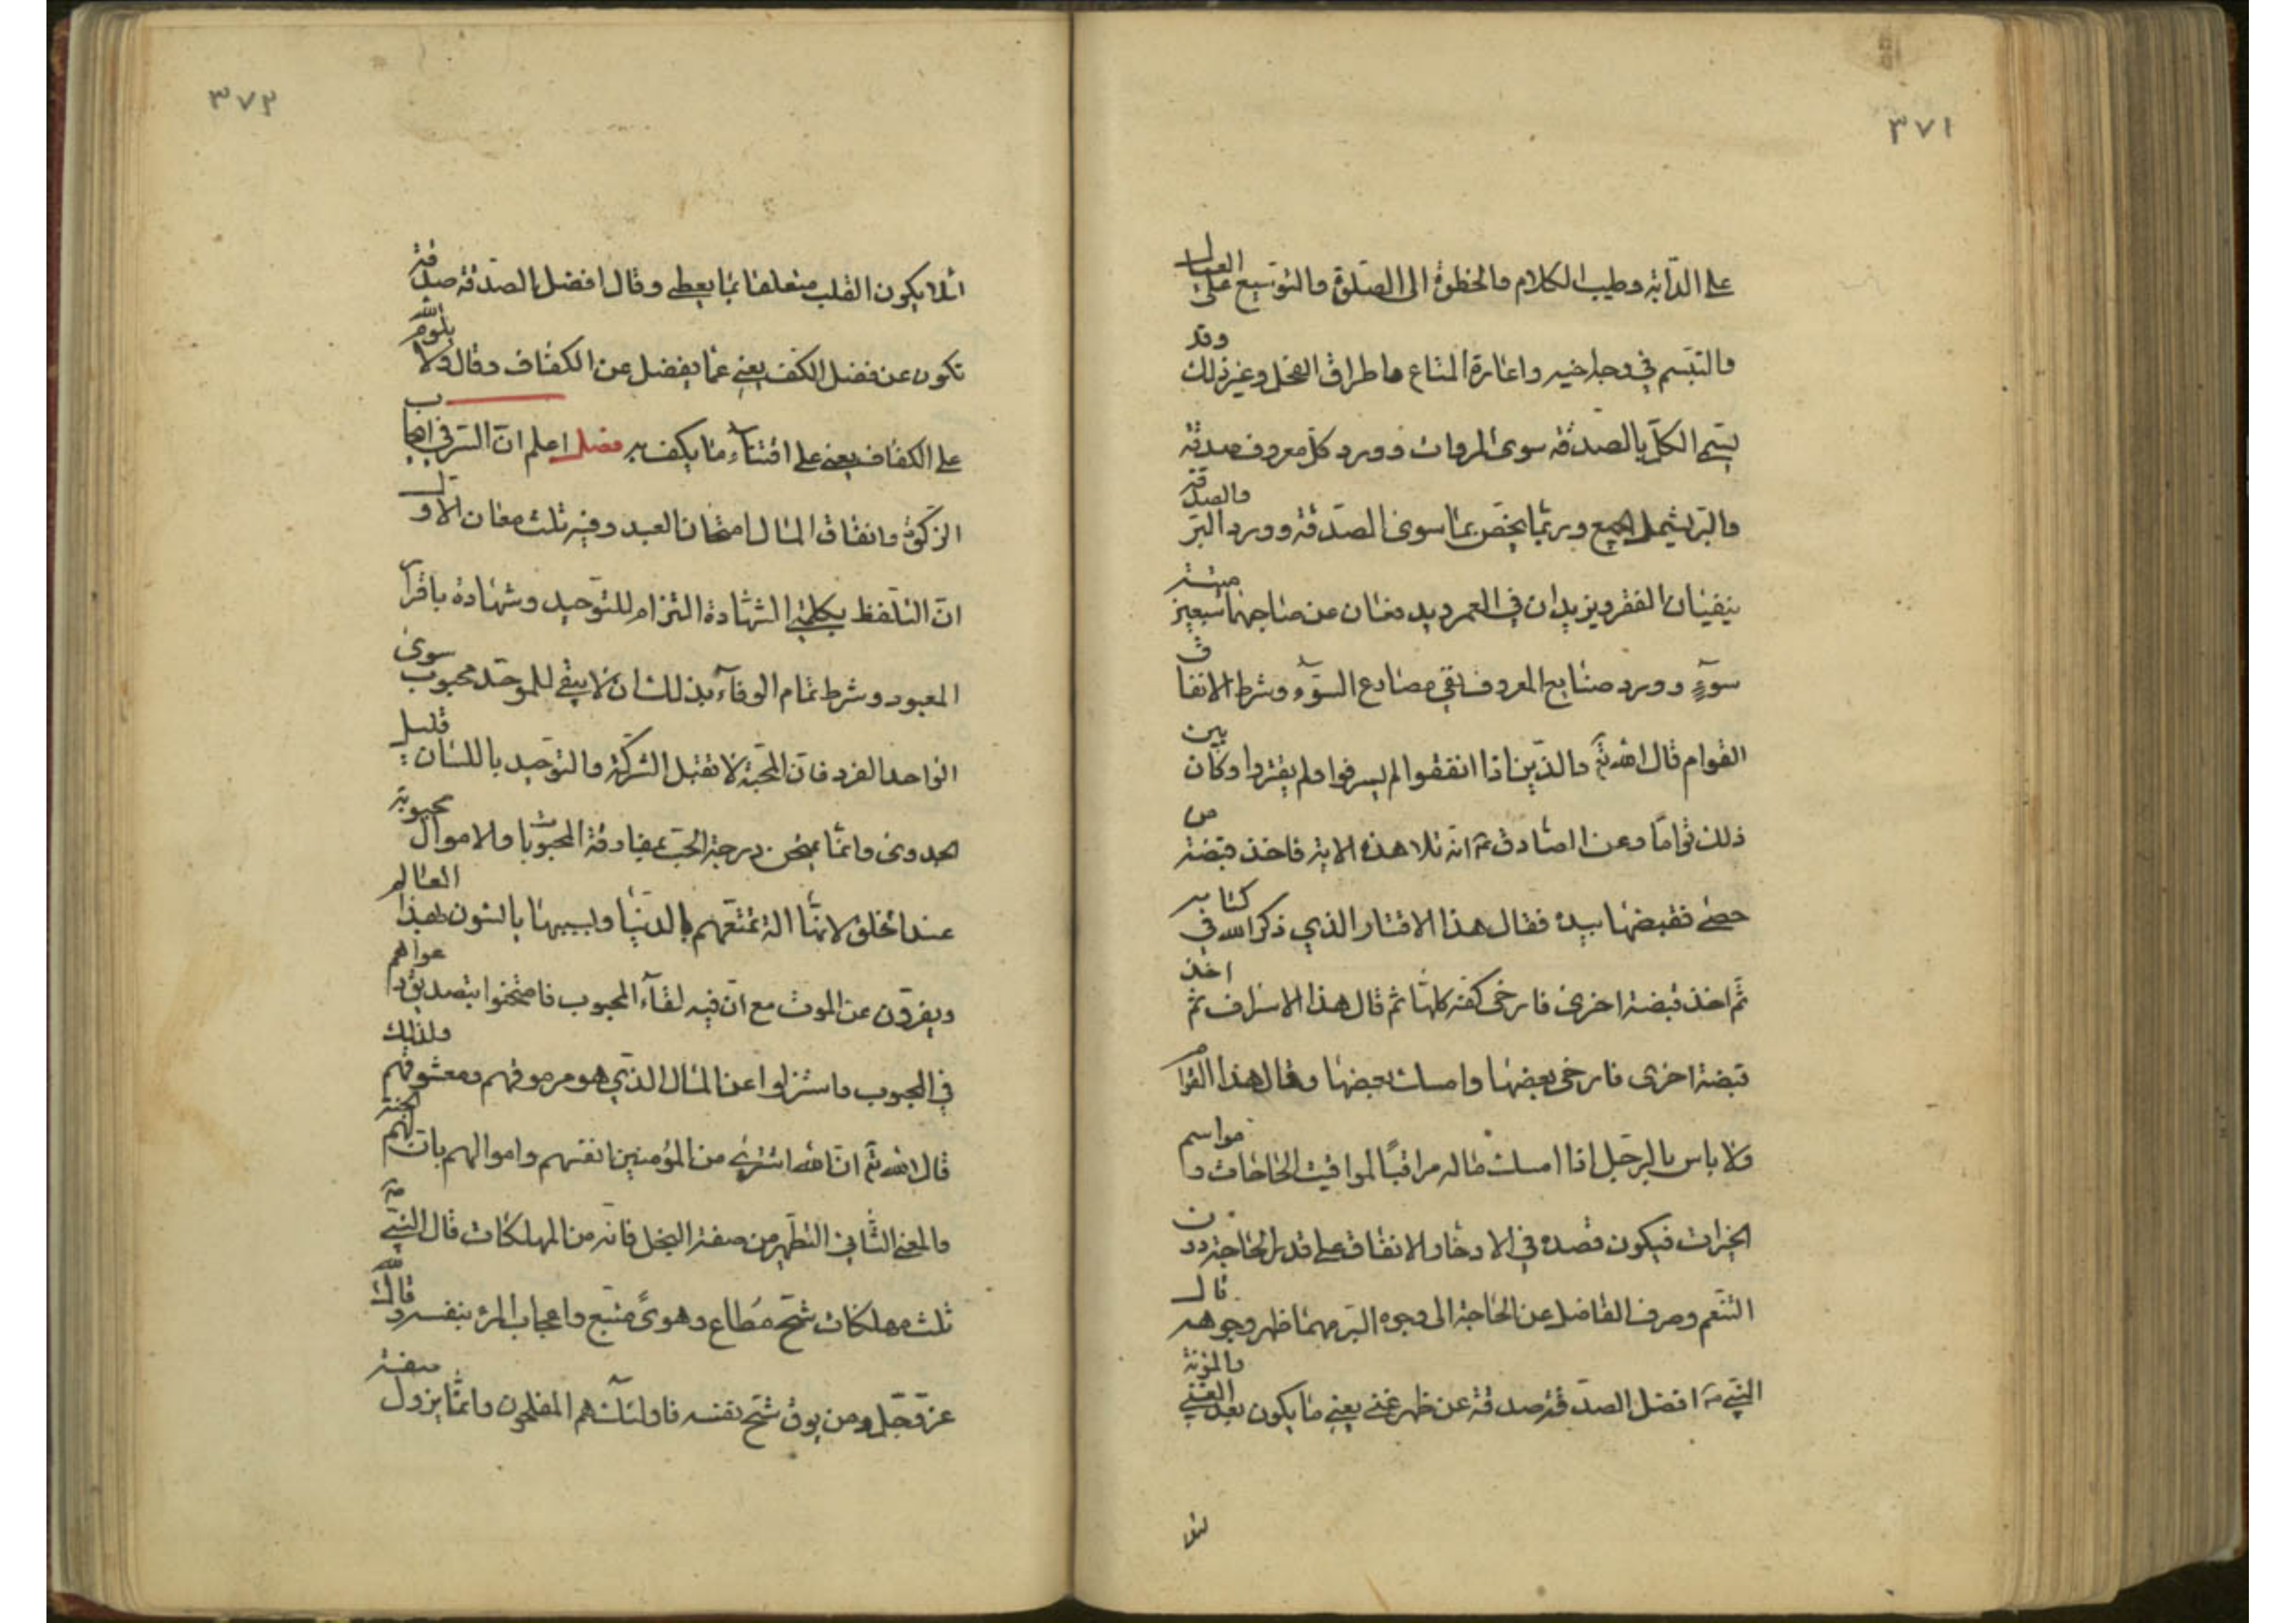 ٣٧١
على الدّابّة وطيب الكلام والخطوة الى الصّلوة والتوسيع على العيال
والتبسّم في وجه اخيه واعارة المتاع واطراق الفحل وغير ذلك وقد
يسمى الكلّ بالصدقة سوى المروات وورد كلّ معروف صدقة
والبرّ يشمل الجميع وربّما يخصّ بما سوى الصّدقة وورد البرّ والصدقة
ينفيان الفقر ويزيدان في العمر ويدفعان عن صاحبهما سبعين ميتة
سوءٍ وورد صنايع المعروف تقي مصارع السّوء وشرط الانفاق
القوام قال الله تعٓ والذّين اذا انفقوا لم يسرفوا ولم يقتروا وكان بين
ذلك قواما وعن الصّادق عٓ انّه تلا هذه الاية فاخذ قبضة من
حصى فقبضها بيده فقال هذا الاقتار الذي ذكر الله في كتابه
ثم اخذ قبضة اخرى فارخى كفّه كلها ثم قال هذا الاسراف ثم اخذ
قبضة اخرى فارخى بعضها وامسك بعضها وقال هذا القوام
ولا باس بالرّجل اذا امسك ماله مراقباً لمواقيت الحاجات ومواسم
الخيرات فيكون قصده في الادخار والانفاق على قدر الحاجة دون
التنعّم وصرف الفاضل عن الحاجة الى وجوه البرّ مهما ظهر وجوهه قال
النبّي صٓ افضل الصدّقة صدقة عن ظهر غنى يعني ما يكون بعد الغنى والمؤنة
لئلا
٣٧٢
لئلا يكون القلب متعلقا بما يعطى وقال افضل الصّدقة صدقة
تكون عن فضل الكفّ يعني عمّا يفضل عن الكفاف وقال ولا يلوم الله
على الكفاف يعني على اقتناء ما يكف به فصل اعلم انّ السّر في ايجاب
الزّكوة وانفاق المال امتحان العبد وفيه ثلث معان الاول
انّ التلّفظ بكلمتي الشّهادة التزام للتوّحيد وشهادة بافراد
المعبود وشرط تمام الوفاء بذلك ان لا يبقى للموحّد محبوب سوى
الواحد الفرد فانّ المحبّة لا تقبل الشركة والتوّحيد باللسان قليل
الجدوى وانّما يمتحن درجة الحبّ بمفارقة المحبوبات والاموال محبوبة
عند الخلق لانها الة تمتعّهم بالدنيا وبسببها يانسون بهذا العالم
ويفرّون عن الموت مع انّ فيه لقاء المحبوب فامتحنوا بتصديق دعواهم
في المحبوب واستنزلوا عن المال الذّي هو مرموقهم ومعشوقهم ولذلك
قال الله تعٓ انّ الله اشترى من المؤمنين انفسهم واموالهم بانّ لهم الجنة
والمعنى الثّاني التطّهير من صفة البخل فانّه من المهلكات قال النبّي صٓ
ثلث مهلكات شحّ مُطاع وهوىً متبّع واعجاب المرء بنفسه وقال الله
عزّ وجّل ومن يوق شحّ نفسه فاولئك هم المفلحون وانمّا يزول صفة